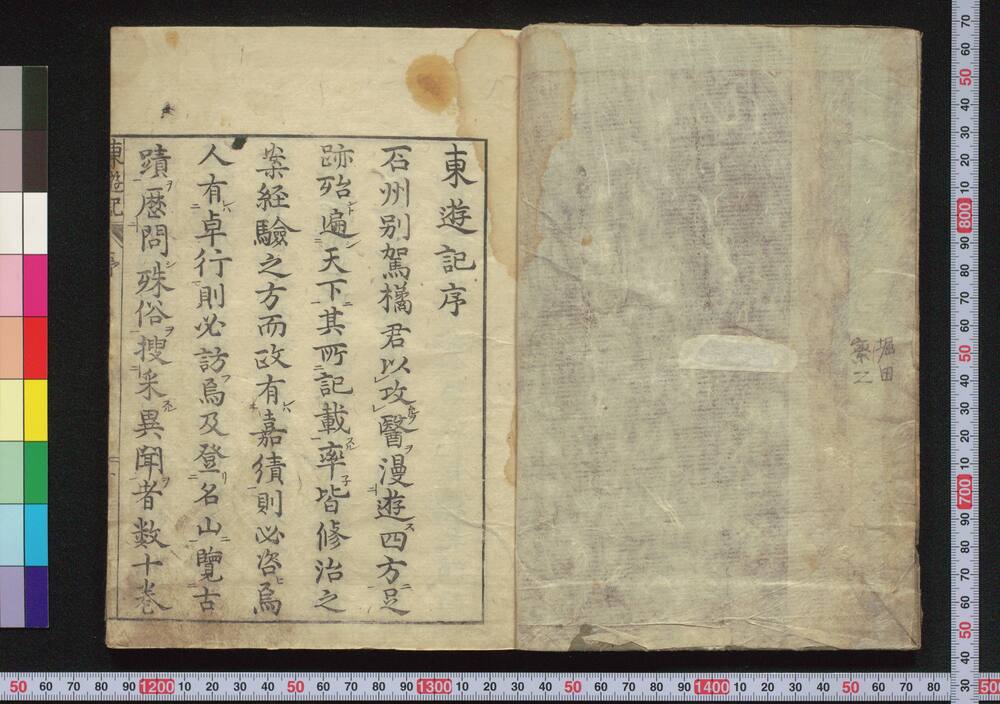 堀田
東遊記序
石州別駕橘君以攻醫漫遊四方足
跡殆遍天下其所記載率皆修治之
案経驗之方而政有嘉績則必咨焉
人有卓行則必訪焉及登名山覽古
蹟歴問殊俗搜采異聞者数十巻
東遊記